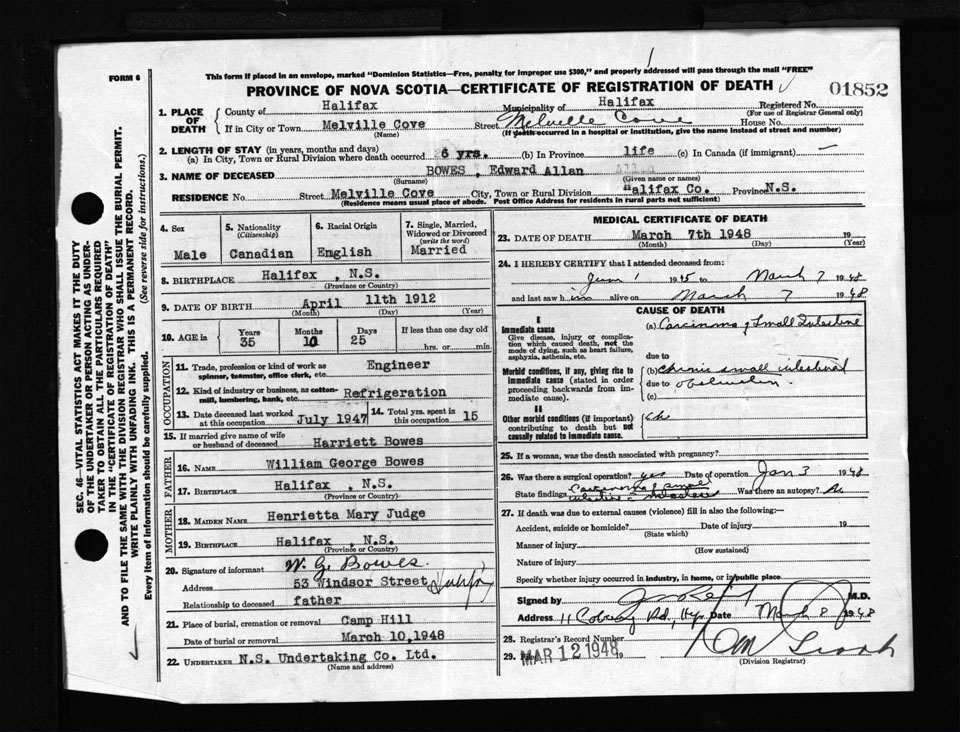 FORM 6
This form if placed in an envelope, marked "Dominion Statistics—Free, penalty for improper use $300," and properly addressed will pass through the mail "FREE"
PROVINCE OF NOVA SCOTIA—CERTIFICATE OF REGISTRATION OF DEATH
01852
1. PLACE OF DEATH
County of Halifax Municipality of Halifax Registered No.
(For use of Registrar General only)
If in City or Town Melville Cove Street Melville Cove House No.
(Name) (If death occurred in a hospital or institution, give the name instead of street and number)
2. LENGTH OF STAY (in years, months and days)
(a) In City, Town or Rural Division where death occurred 6 yrs. (b) In Province life (c) In Canada (if immigrant) —
3. NAME OF DECEASED BOWES , Edward Allan
(Surname) (Given name or names)
RESIDENCE No. Street Melville Cove City, Town or Rural Division Halifax Co. Province N.S.
(Residence means usual place of abode. Post Office Address for residents in rural parts not sufficient)
4. Sex
Male
5. Nationality
(Citizenship)
Canadian
6. Racial Origin
English
7. Single, Married, Widowed or Divorced
(write the word)
Married
8. BIRTHPLACE Halifax , N.S.
(Province or Country)
9. DATE OF BIRTH April 11th 1912
(Month) (Day) (Year)
10. AGE in
Years Months Days If less than one day old
35 10 25 hrs. or min.
OCCUPATION
11. Trade, profession or kind of work as spinner, teamster, office clerk, etc. Engineer
12. Kind of industry or business, as cotton-mill, lumbering, bank, etc. Refrigeration
13. Date deceased last worked at this occupation July 1947
14. Total yrs. spent in this occupation 15
15. If married give name of wife or husband of deceased Harriett Bowes
FATHER
16. NAME William George Bowes
17. BIRTHPLACE Halifax , N.S.
(Province or Country)
MOTHER
18. MAIDEN NAME Henrietta Mary Judge
19. BIRTHPLACE Halifax , N.S.
(Province or Country)
20. Signature of informant W. G. Bowes.
Address 53 Windsor Street
Relationship to deceased father
21. Place of burial, cremation or removal Camp Hill
Date of burial or removal March 10,1948
22. UNDERTAKER N.S. Undertaking Co. Ltd.
(Name and address)
MEDICAL CERTIFICATE OF DEATH
23. DATE OF DEATH March 7th 1948 19
(Month) (Day) (Year)
24. I HEREBY CERTIFY that I attended deceased from:
June 1 1945 to March 7 1948
and last saw him alive on March 7 1948
CAUSE OF DEATH
I
Immediate cause
Give disease, injury or complication which caused death, not the mode of dying, such as heart failure, asphyxia, asthenia, etc.
(a) Carcinoma of Small Intestine
due to
Morbid conditions, if any, giving rise to immediate cause (stated in order proceeding backwards from immediate cause).
(b) Chronic small intestinal
due to obstruction.
(c)
II
Other morbid conditions (if important) contributing to death but not causally related to immediate cause.
25. If a woman, was the death associated with pregnancy?
26. Was there a surgical operation? yes Date of operation Jan 3 1948
State findings Carcinoma of small intestine Was there an autopsy? No
27. If death was due to external causes (violence) fill in also the following:—
Accident, suicide or homicide? Date of injury 19
(State which)
Manner of injury
(How sustained)
Nature of injury
Specify whether injury occurred in industry, in home, or in public place
Signed by M.D.
Address Rd., Date March 8 1948
28. Registrar's Record Number
29. MAR 12 1948 19
(Division Registrar)
SEC. 46—VITAL STATISTICS ACT MAKES IT THE DUTY
OF THE UNDERTAKER OR PERSON ACTING AS UNDER-
TAKER TO OBTAIN ALL THE PARTICULARS REQUIRED
IN THE "CERTIFICATE OF REGISTRATION OF DEATH"
AND TO FILE THE SAME WITH THE DIVISION REGISTRAR WHO SHALL ISSUE THE BURIAL PERMIT.
WRITE PLAINLY WITH UNFADING INK. THIS IS A PERMANENT RECORD.
Every item of information should be carefully supplied. (See reverse side for instructions.)